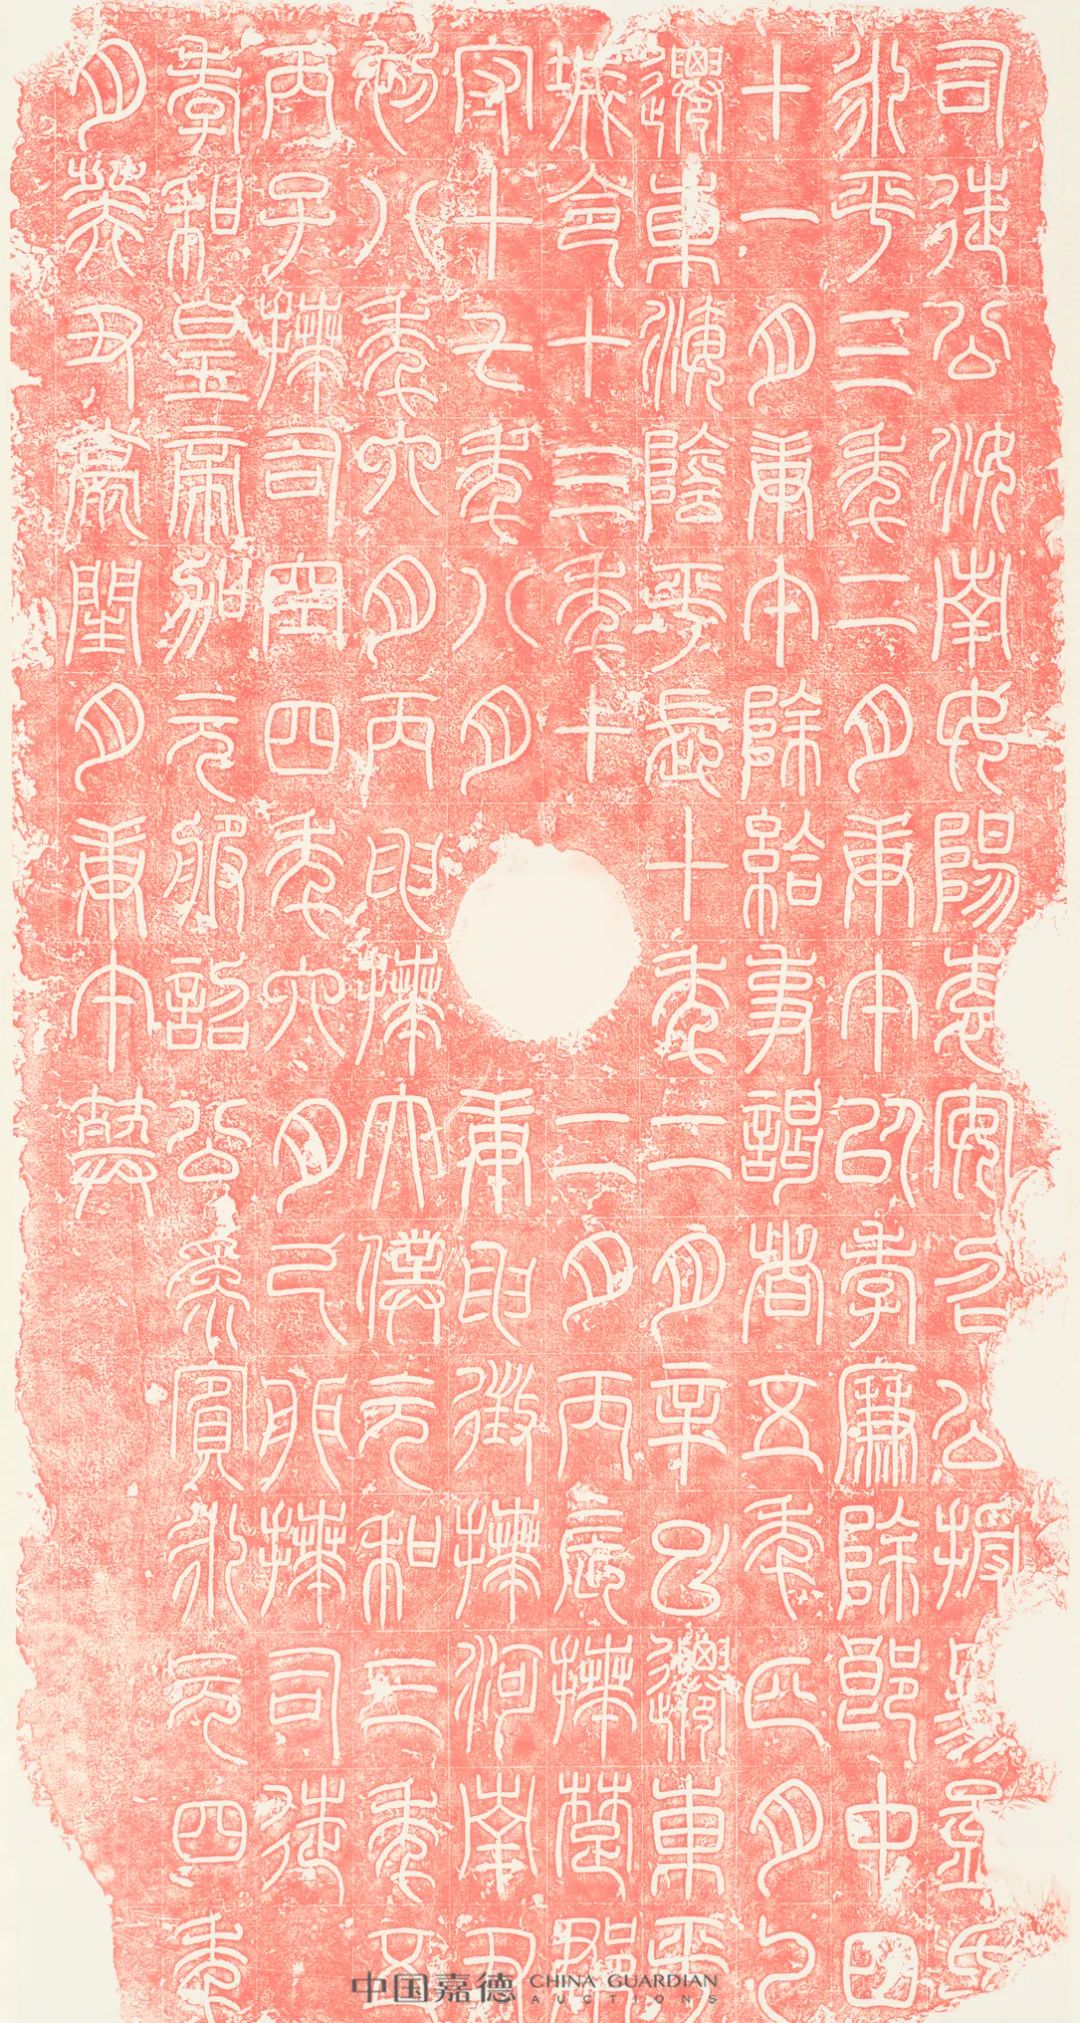 司徒公汝南女陽袁安召公授易孟氏
永平三年二月庚午以孝廉除郎中四
十一月庚午除給事謁者五年正月乙
遷東海陰平長十年二月辛巳遷東平
城令十三年十二月丙辰拜楚郡
守十七年八月庚申徵拜河南尹
初八年六月丙申拜太僕元和三年五
丙子拜司空四年六月己卯拜司徒
孝和皇帝加元服詔公為賓永元四年
月癸丑薨閏月庚午葬
中国嘉德 CHINA GUARDIAN
AUCTIONS